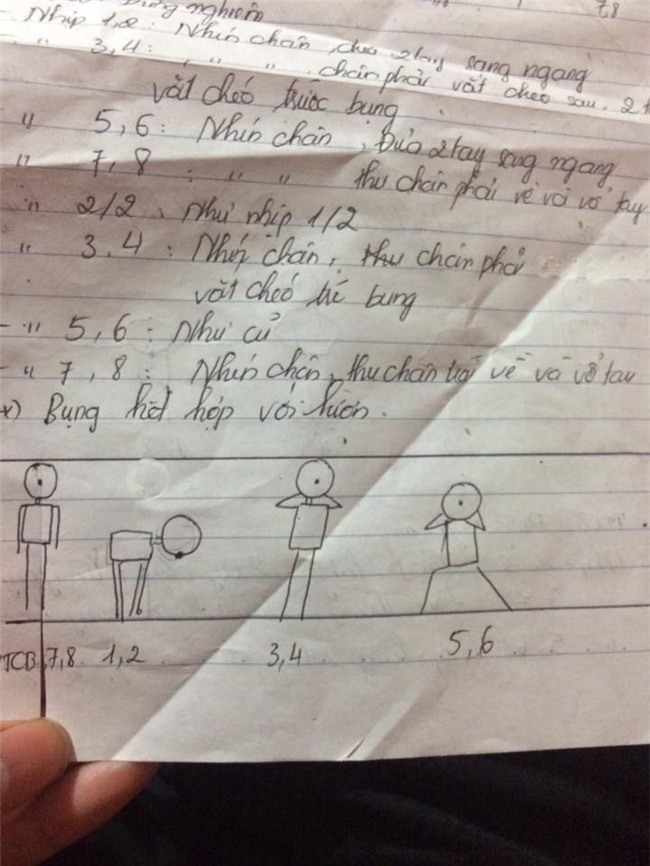 nghiêm 7,8
Nhịp 1,2: Nhún chân, đưa 2 tay sang ngang
" 3,4: " " chân phải vắt chéo sau, 2 t
vắt chéo trước bụng
" 5,6: Nhún chân, Đưa 2 tay sang ngang
" 7,8: " " thu chân phải về và vỗ tay
" 2/2. Như nhịp 1/2
" 3.4: Nhún chân, thu chân phải
vắt chéo bụng
- " 5,6: Như cũ
- " 7,8: Nhún chân, thu chân trái về và vỗ tay
*) Bụng kết hợp với lườn.
TCB 7,8 1,2 3,4 5,6